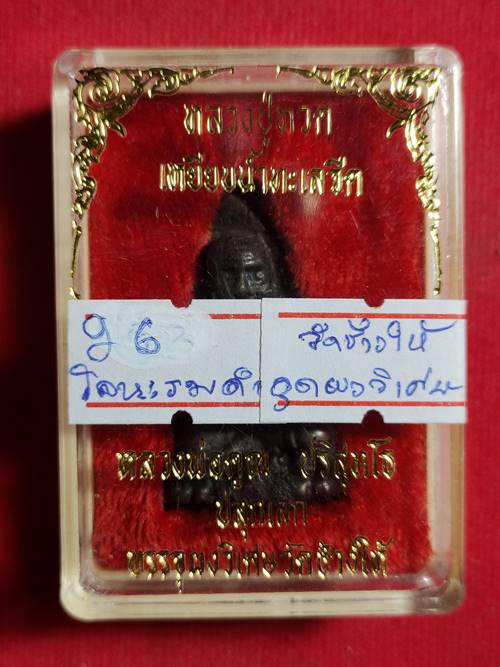 หลวงปู่ทวด
เหยียบน้ำทะเลจืด
ปี 63 วัดช้างให้
โลหะรมดำ อุดผงวิเศษ
หลวงพ่อคูณ ปริสุทโธ
ปลุกเสก
บรรจุผงวิเศษวัดช้างให้